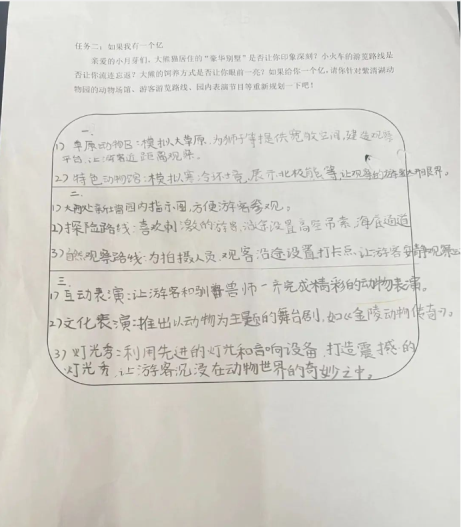 任务二：如果我有一个亿
亲爱的小月牙们，大熊猫居住的“豪华别墅”是否让你印象深刻？小火车的游览路线是
否让你流连忘返？大熊的饲养方式是否让你眼前一亮？如果给你一个亿，请你针对紫清湖动
物园的动物场馆、游客游览路线、园内表演节目等重新规划一下吧！
一、
1) 草原动物区：模拟大草原，为狮子等提供宽敞空间，建造观察
平台，让游客近距离观察。
2) 特色动物馆：模拟寒冷环境，展示北极熊等，让观
二、
1) 园内指示图，方便游客参观。
2) 探险路线：喜欢刺激的游客，沿途设置高空吊索，海底通道
3) 自然观察路线：为拍摄人员，观客沿途设置打卡点，让游客
三、
1) 互动表演：让游客和驯兽师一齐完成精彩的动物表演。
2) 文化表演：推出以动物为主题的舞台剧，如《金陵动物传奇》。
3) 灯光秀：利用先进的灯光和音响设备，打造震撼的
灯光秀，让游客沉浸在动物世界的奇妙之中。